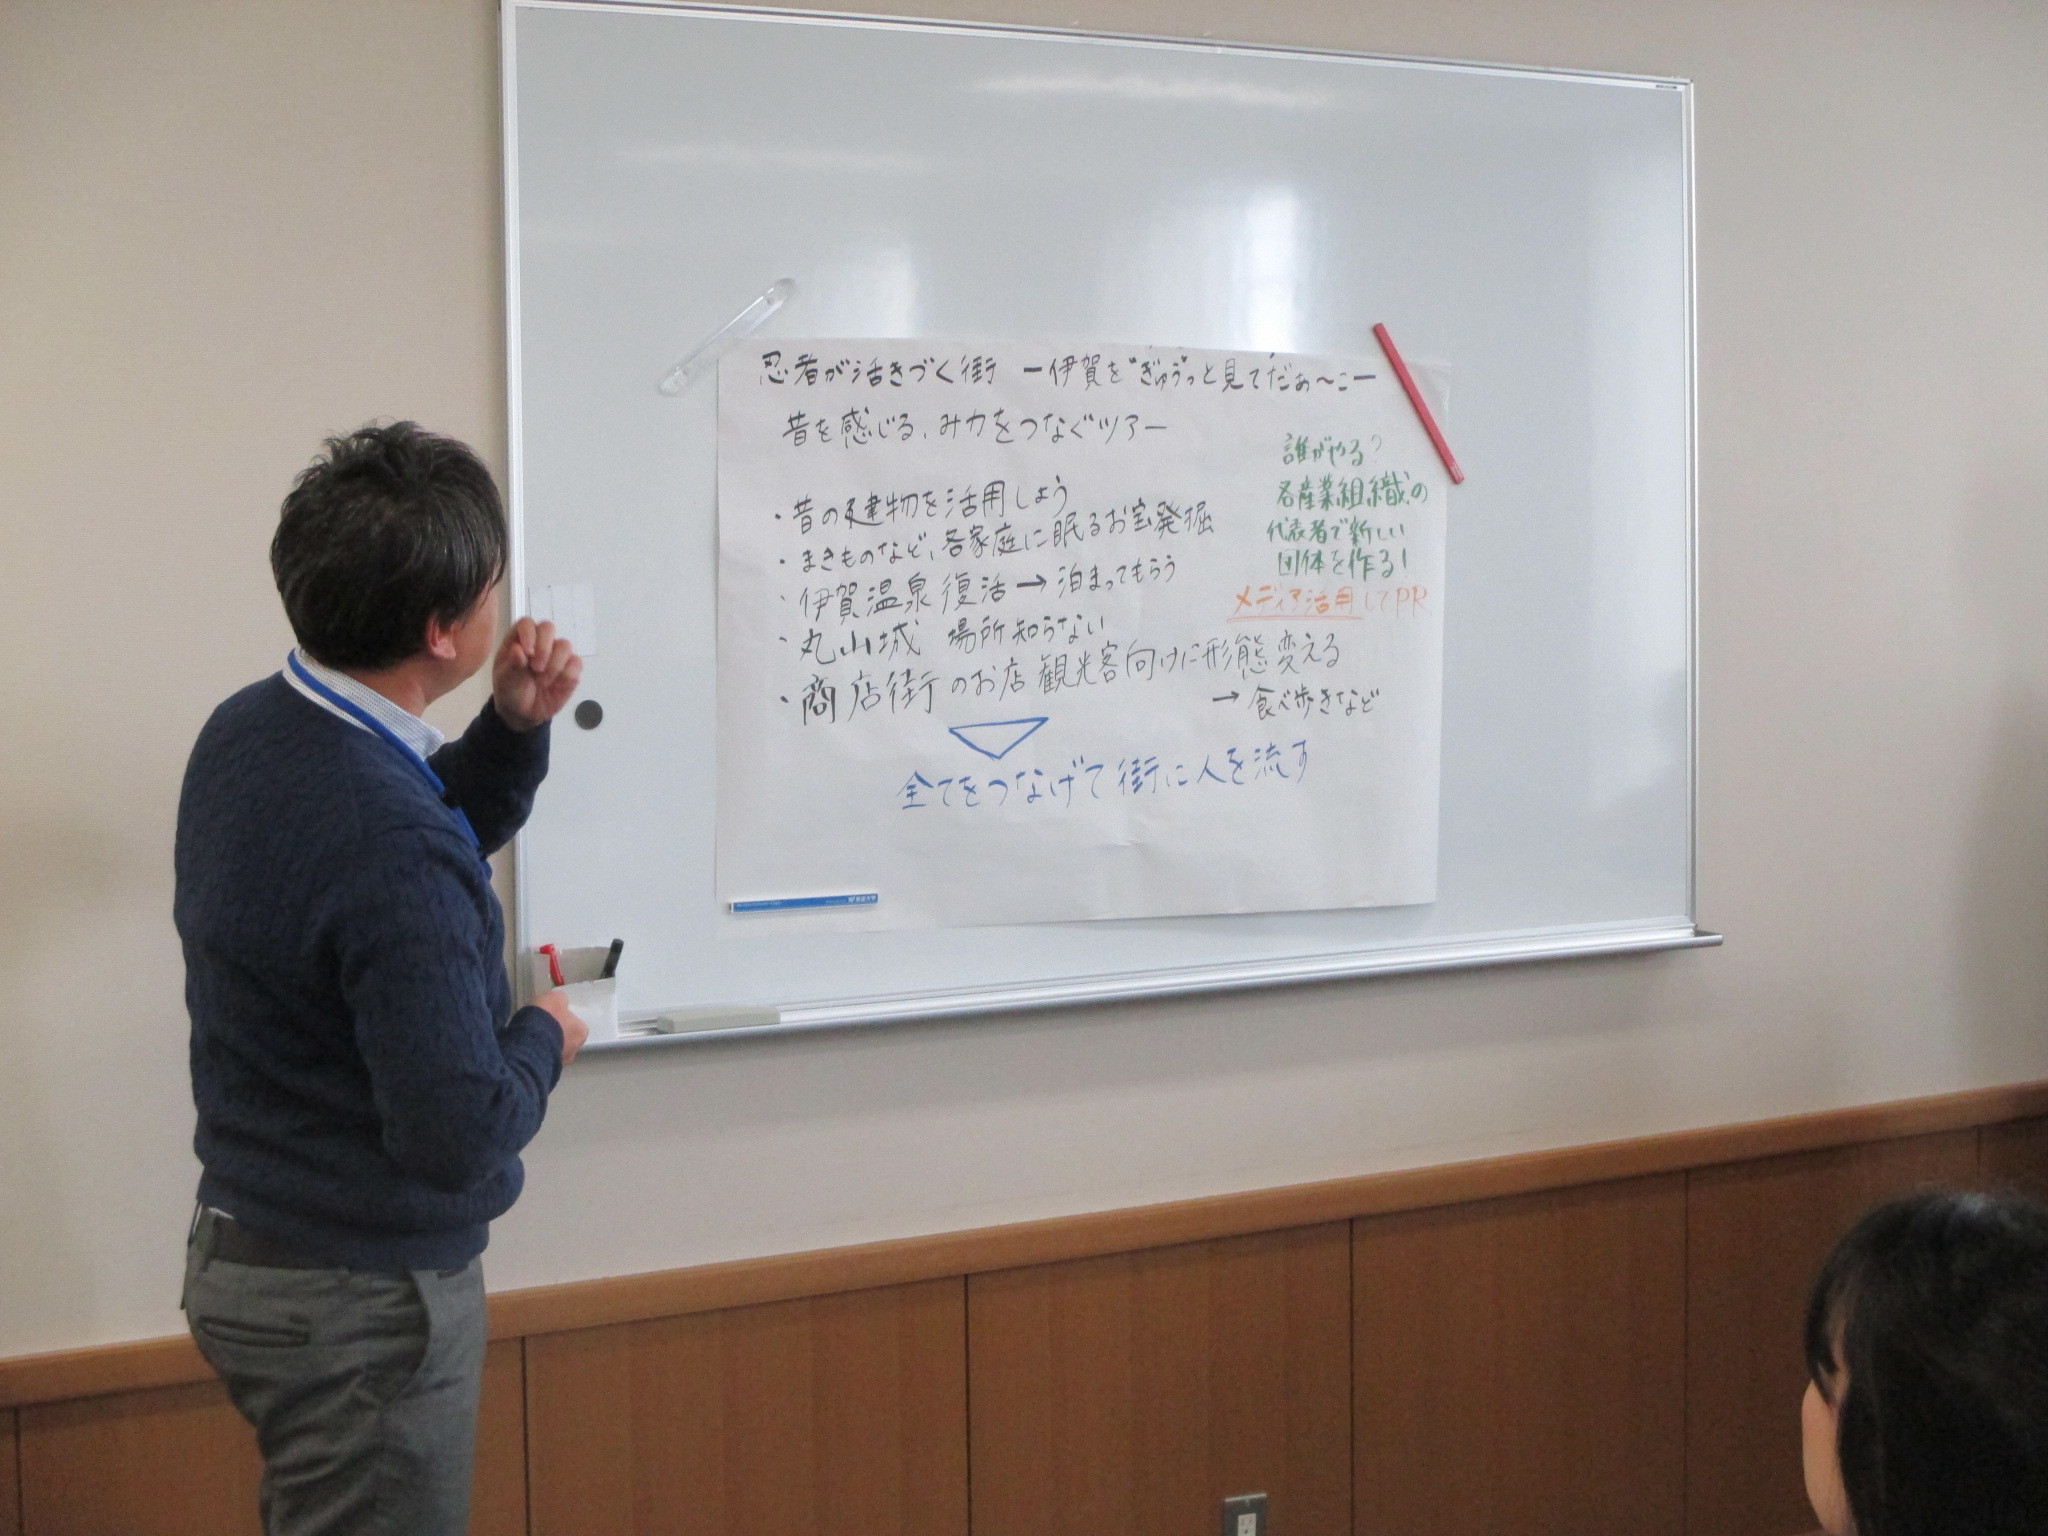 忍者が活きづく街 ー伊賀を"ぎゅう"っと見てだぁ～こー
昔を感じる、み力をつなぐツアー
・昔の建物を活用しよう
・まきものなど、各家庭に眠るお宝発掘
・伊賀温泉復活→泊まってもらう
・丸山城 場所知らない
・商店街のお店 観光客向けに形態変える
→食べ歩きなど
全てをつなげて街に人を流す
誰がやる？
各産業組織の
代表者で新しい
団体を作る！
メディア活用してPR